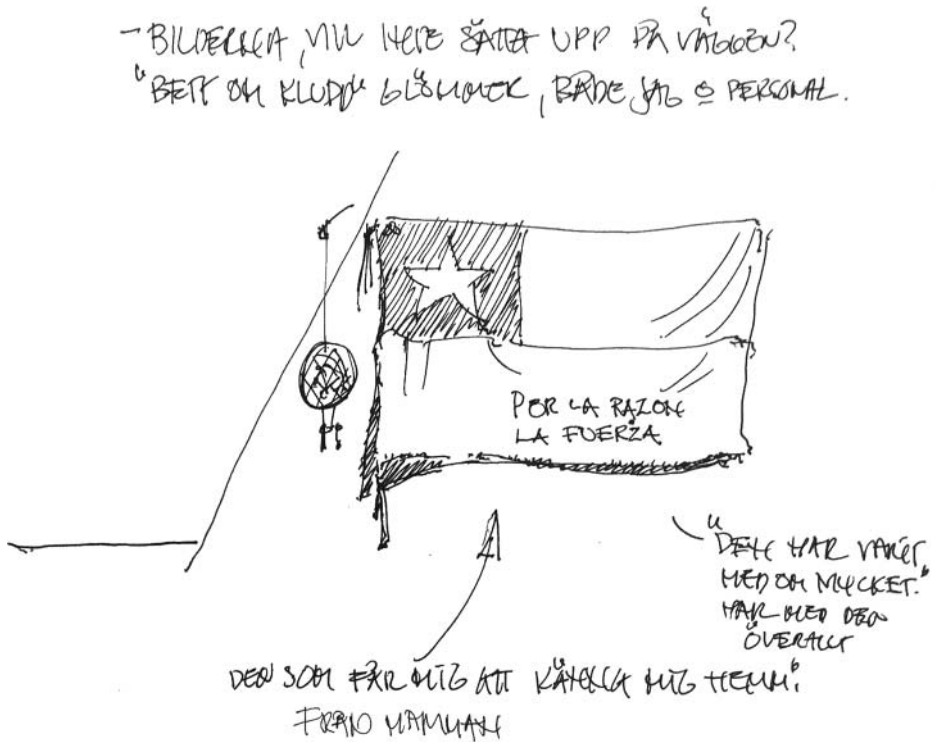 - BILDERNA, VILL INTE SÄTTA UPP PÅ VÄGGEN?
"BETT OM KLUDD" GLÖMMER, BÅDE JAG O PERSONAL.
POR LA RAZON
LA FUERZA
"DEN HAR VARIT
MED OM MYCKET."
HAR MED DEN
ÖVERALLT
DEN SOM FÅR MIG ATT KÄNNA MIG HEMMA"
FRÅN MAMMAN